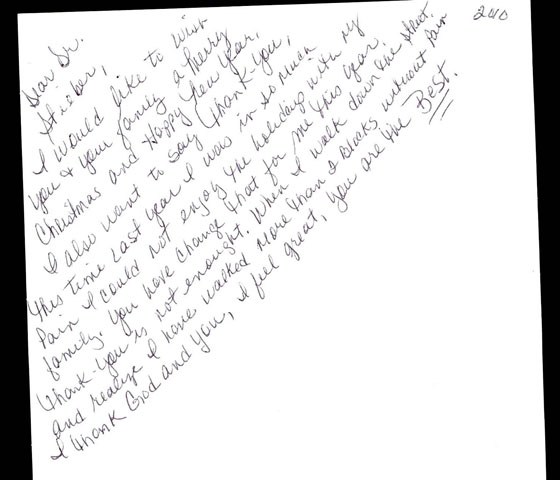 2010
Dear Dr.
Stieber,
I would like to wish
you & your family a merry
Christmas and Happy New Year,
I also want to say thank-you,
this time last year I was in so much
pain I could not enjoy the holidays with my
family. You have change that for me this year
thank-you is not enought. When I walk down the street
and realize I have walked more than 2 blocks without pain
I thank God and you, I feel great, you are the BEST.